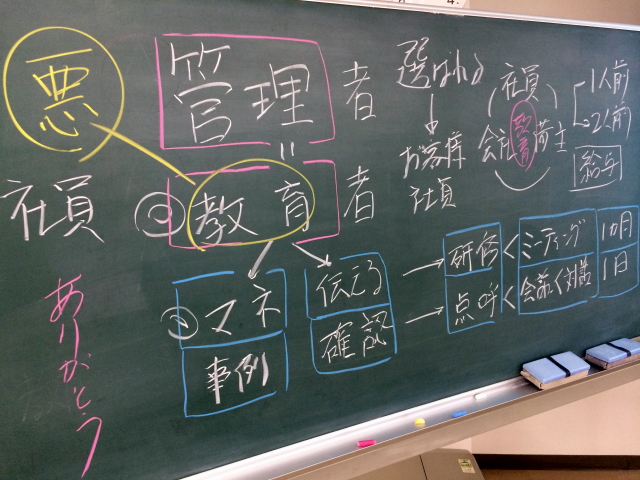 悪
管理者
=
社員 ◎教育者
ありがとう
マネ
事例
伝える
確認
選ばれる
↓
お客様
社員
社員
会社 教育 荷主
1人前
2人前
給与
→ 研修 < ミーティング 1カ月
→ 点呼 < 会話 < 対話 1日